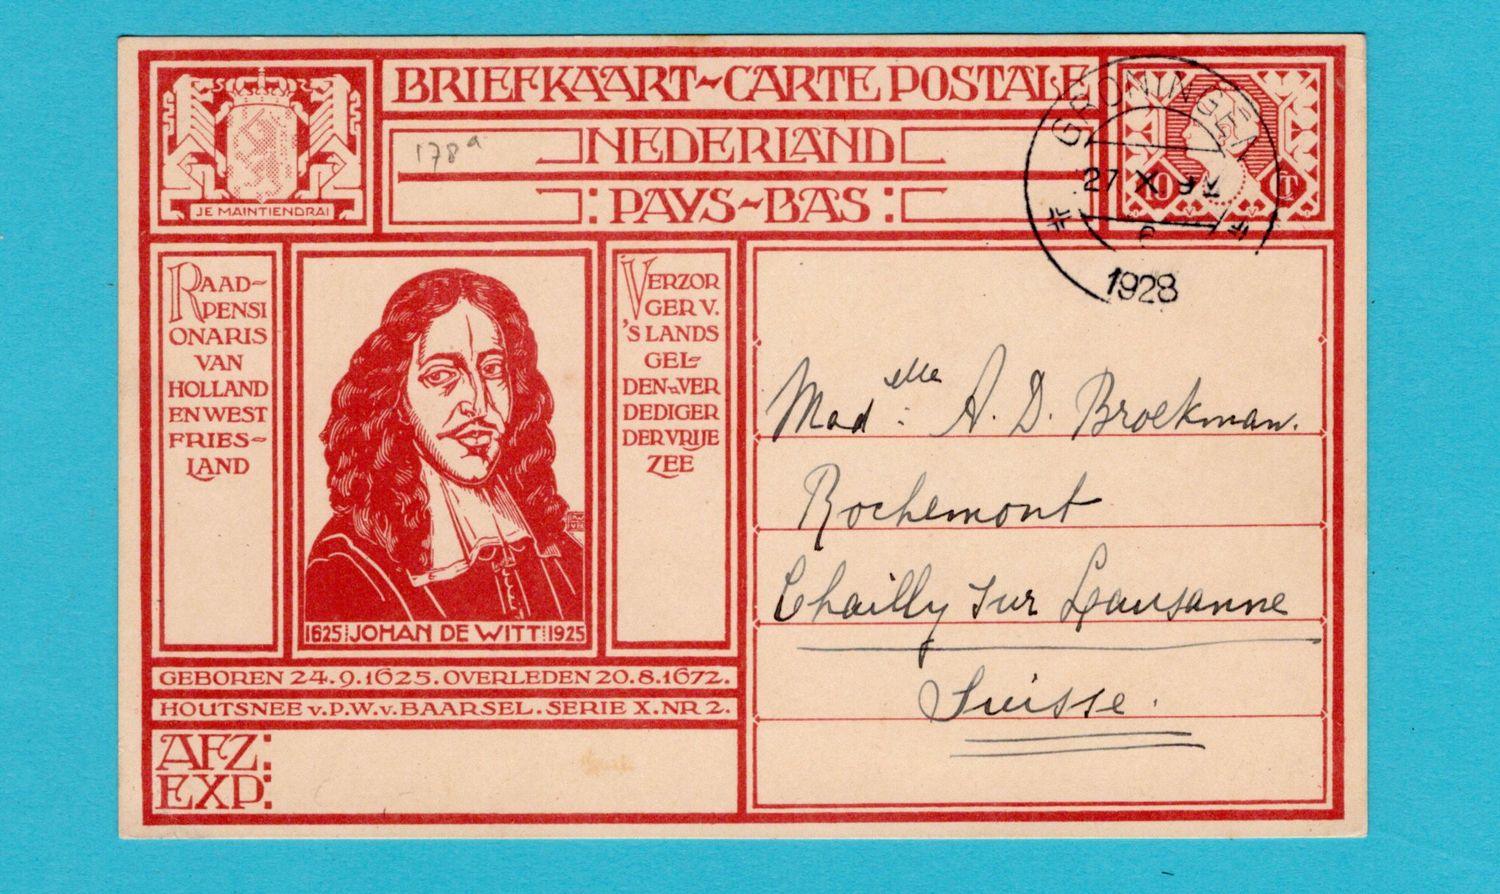 BRIEFKAART~CARTE POSTALE
178a
NEDERLAND
:PAYS~BAS:
JE MAINTIENDRAI
GRONINGEN
27 X
6
1928
10 CT
RAAD-
PENSI
ONARIS
VAN
HOLLAND
EN WEST
FRIES-
LAND
1625 JOHAN DE WITT 1925
VERZOR
GER V.
'S LANDS
GEL-
DEN VER
DEDIGER
DER VRIJE
ZEE
GEBOREN 24.9.1625. OVERLEDEN 20.8.1672.
HOUTSNEE v. P.W.v. BAARSEL. SERIE X. NR 2.
AFZ:
EXP:
Madelle: A. D. Broekman.
Rochemont
Chailly sur Lausanne
Suisse.